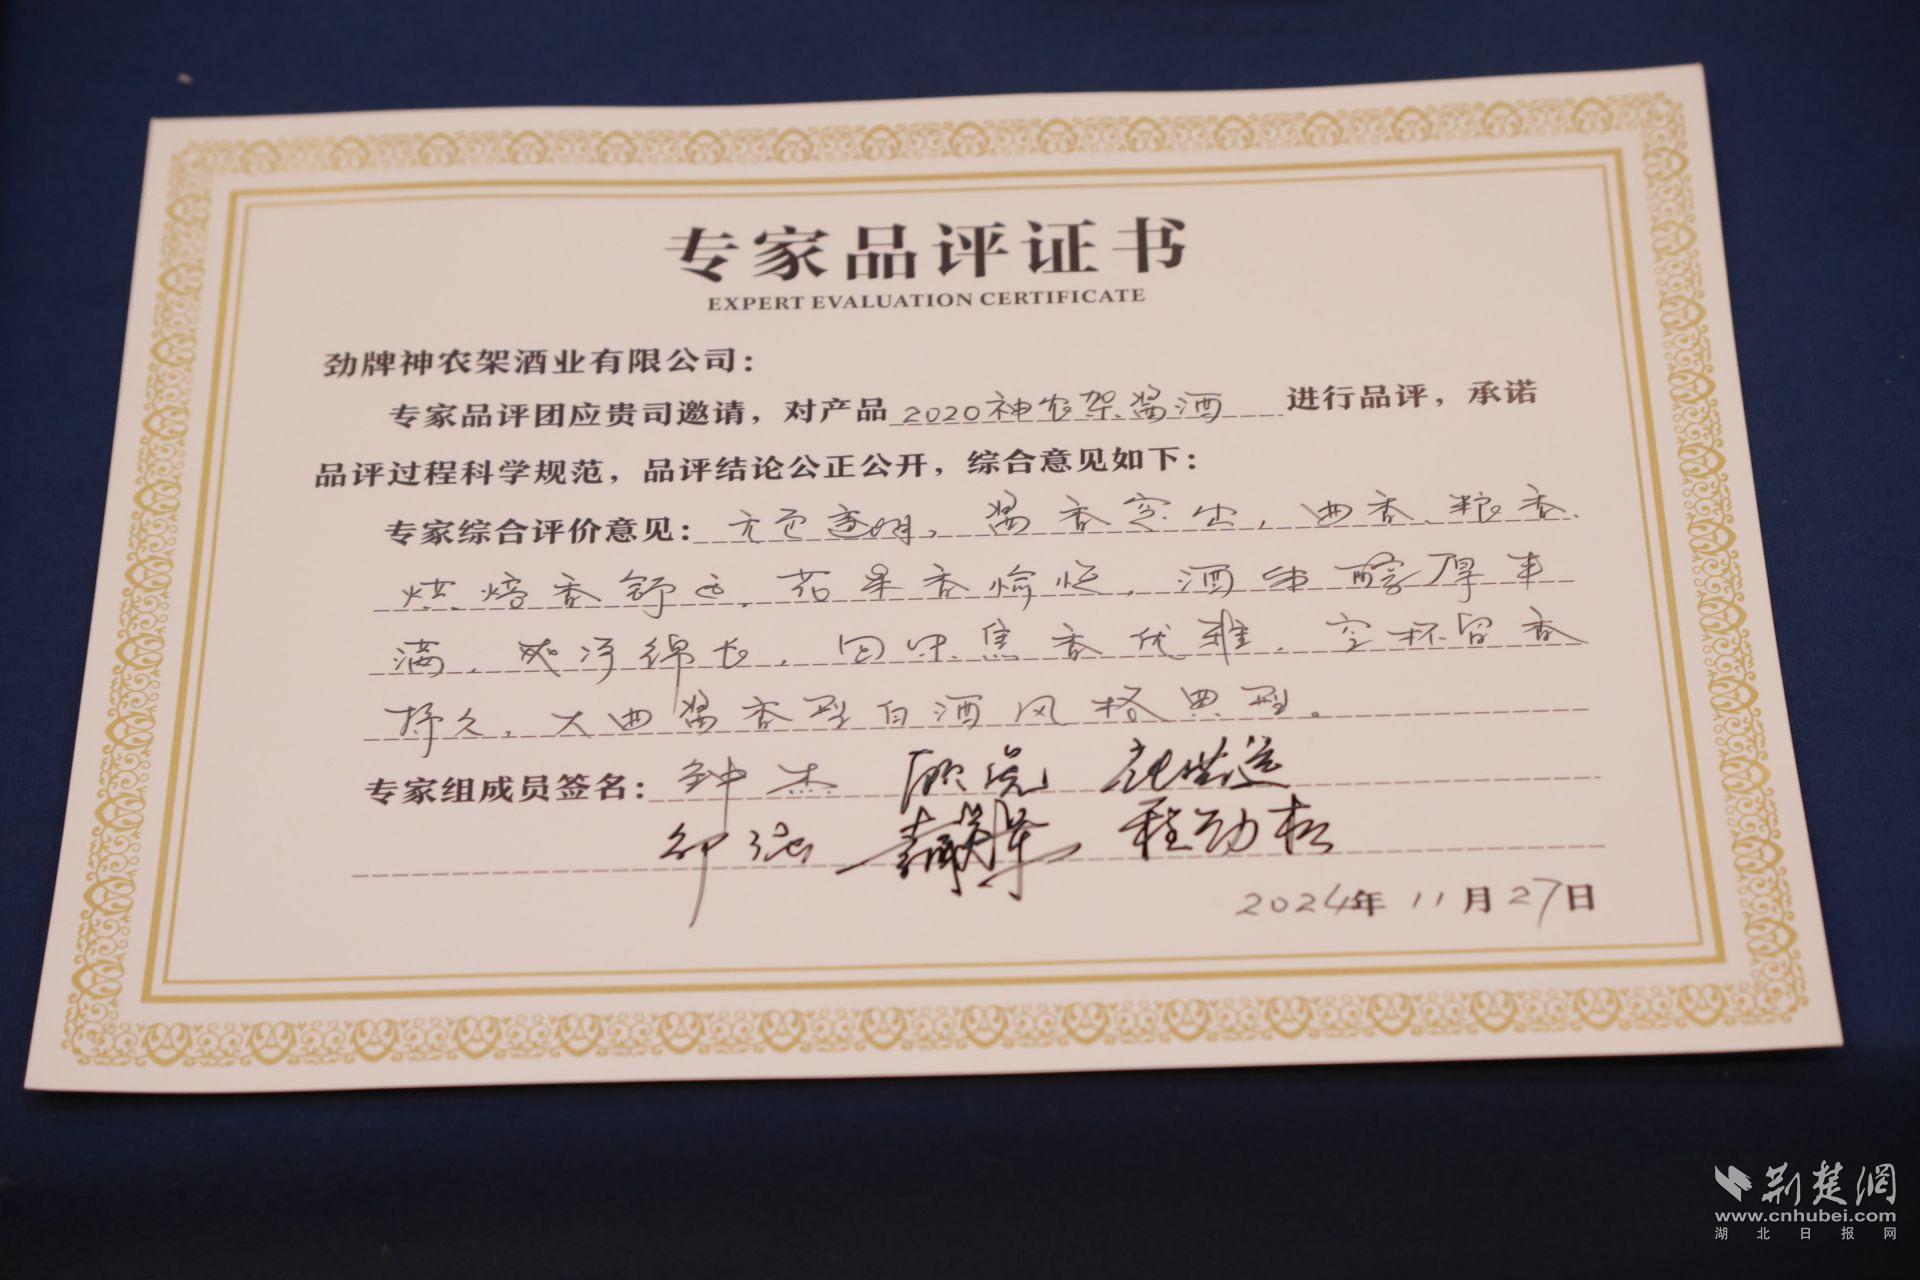 专家品评证书
EXPERT EVALUATION CERTIFICATE
劲牌神农架酒业有限公司：
专家品评团应贵司邀请，对产品2020神农架酱酒进行品评，承诺
品评过程科学规范，品评结论公正公开，综合意见如下：
专家综合评价意见：无色透明，酱香突出，曲香、粮香、
烘焙香舒适，花果香愉悦，酒体醇厚丰
满，爽净绵长，回味焦香优雅，空杯留香
持久，大曲酱香型白酒风格典型。
专家组成员签名：钟杰
程劲松
2024年11月27日
荆楚网
www.cnhubei.com
湖北日报网